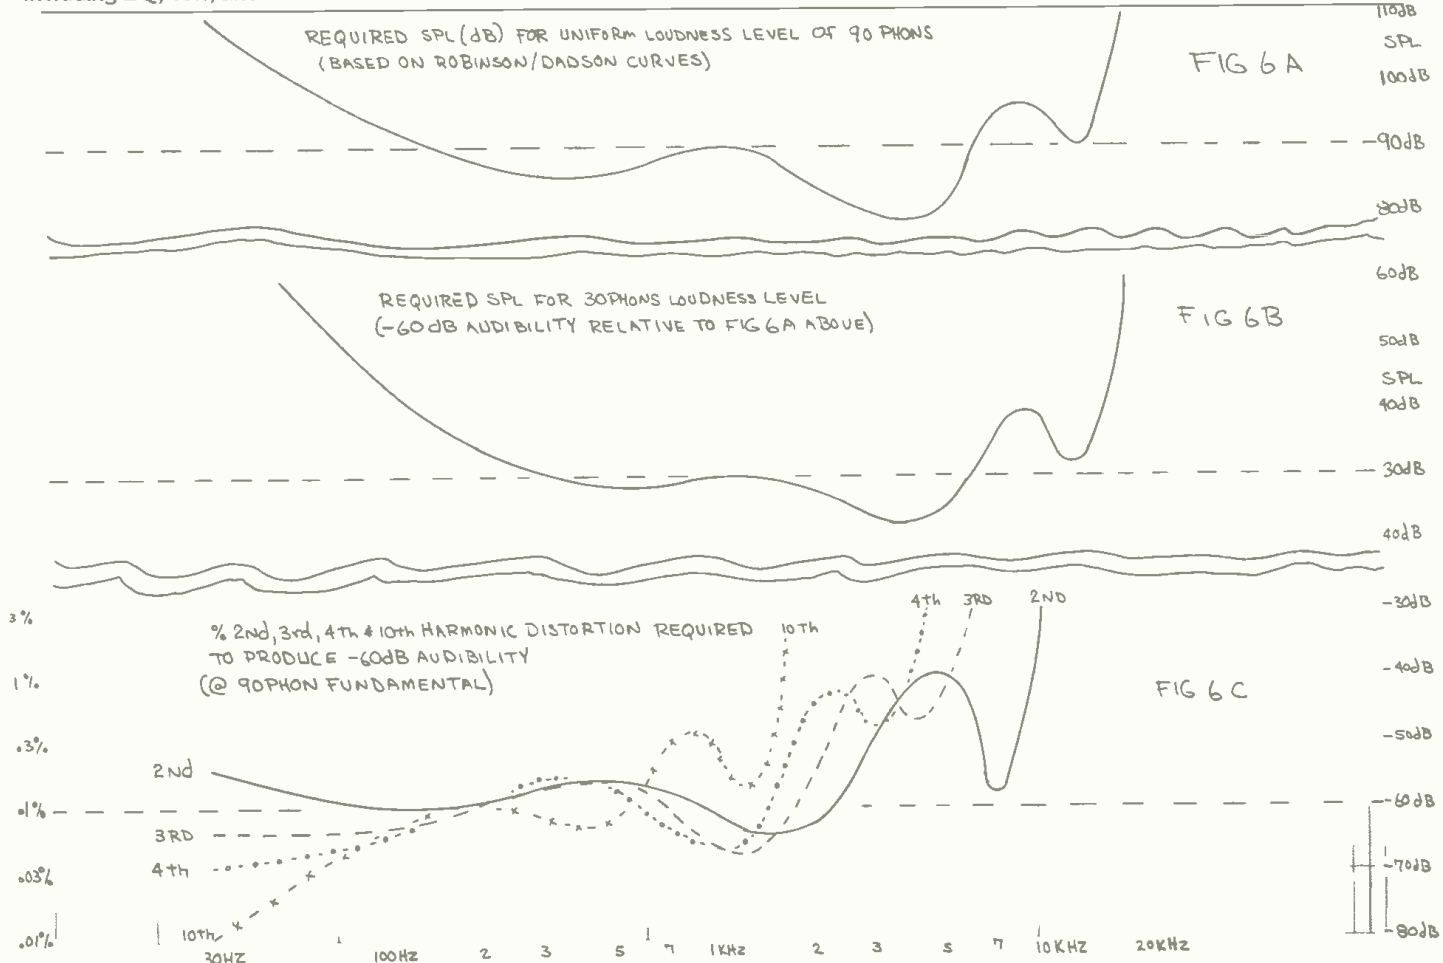 REQUIRED SPL (dB) FOR UNIFORM LOUDNESS LEVEL OF 90 PHONS
(BASED ON ROBINSON/DADSON CURVES)
FIG 6A
110dB
SPL
100dB
-90dB
80dB
REQUIRED SPL FOR 30PHONS LOUDNESS LEVEL
(-60dB AUDIBILITY RELATIVE TO FIG 6A ABOVE)
FIG 6B
60dB
50dB
SPL
40dB
30dB
40dB
% 2nd, 3rd, 4th & 10th HARMONIC DISTORTION REQUIRED
TO PRODUCE -60dB AUDIBILITY
(@ 90PHON FUNDAMENTAL)
10th
4th
3RD
2ND
FIG 6C
3%
1%
.3%
.1%
.03%
.01%
2Nd
3RD
4th
10th
-30dB
-40dB
-50dB
-60dB
-70dB
-80dB
30HZ 100HZ 2 3 5 7 1KHZ 2 3 5 7 10KHZ 20KHZ